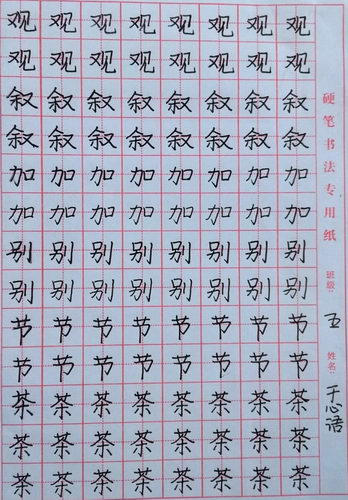 观观观观观观观观
观观观观观观观观
叙叙叙叙叙叙叙叙
叙叙叙叙叙叙叙叙
加加加加加加加加
加加加加加加加加
别别别别别别别别
别别别别别别别别
节节节节节节节节
节节节节节节节节
茶茶茶茶茶茶茶茶
茶茶茶茶茶茶茶茶
茶茶茶茶茶茶茶茶
硬笔书法专用纸
班级: 五
姓名: 于心语